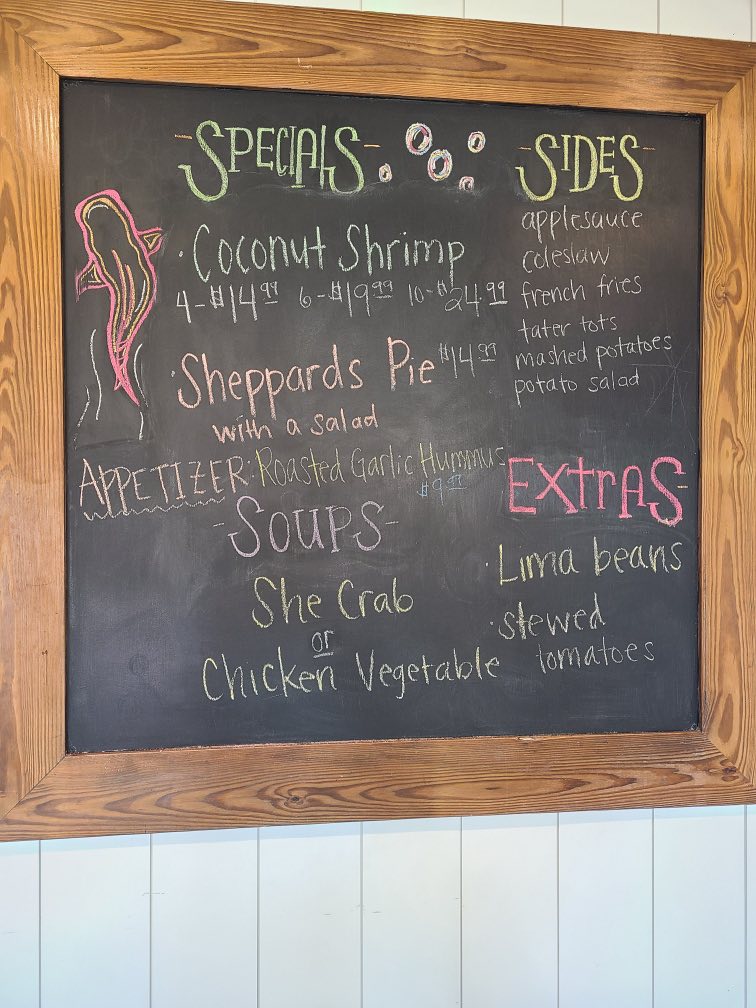 -SPECIALS-
· Coconut Shrimp
4-$14.99 6-$19.99 10-$24.99
· Sheppards Pie $14.99
with a salad
APPETIZER: Roasted Garlic Hummus
$9.99
-SOUPS-
She Crab
or
Chicken Vegetable
-SIDES-
applesauce
coleslaw
french fries
tater tots
mashed potatoes
potato salad
EXTRAS-
· Lima beans
· stewed
tomatoes